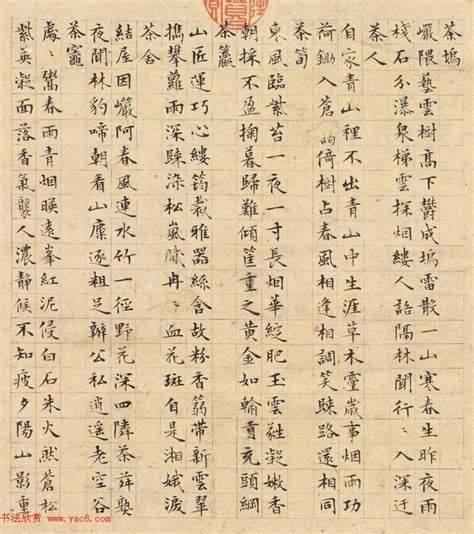 茶塢
巖隈藝雲樹高下鬱成塢雷散一山寒春生昨夜雨
棧石分瀑泉梯雲探烟縷人語隔林聞行〻入深迂
茶人
自家青山裡不出青山中生涯草木靈歲事烟雨功
荷鋤入蒼倚樹占春風相逢相調笑歸路還相同
茶筍
東風臨紫苔一夜一寸長烟華綻肥玉雲蕤凝嫩香
朝採不盈掬暮歸難傾筐重之黃金如輸貢充頭綱
茶籝
山匠運巧心縷筠裁雅器絲含故粉香篛帶新雲翠
擕攀蘿雨深歸染松嵐膩冉〻血花斑自是湘娥淚
茶舍
結屋因巖阿春風連水竹一徑野花深四隣茶荈熟
夜聞林豹啼朝看山麋逐粗足辦公私逍遙老空谷
茶竈
處〻鬻春雨青烟映遠峯紅泥侵白石朱火然蒼松
紫英凝面落香氣襲人濃靜候不知疲夕陽山影重
书法欣赏 www.yac8.com